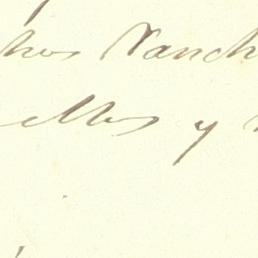 hos Ranch
ellos y